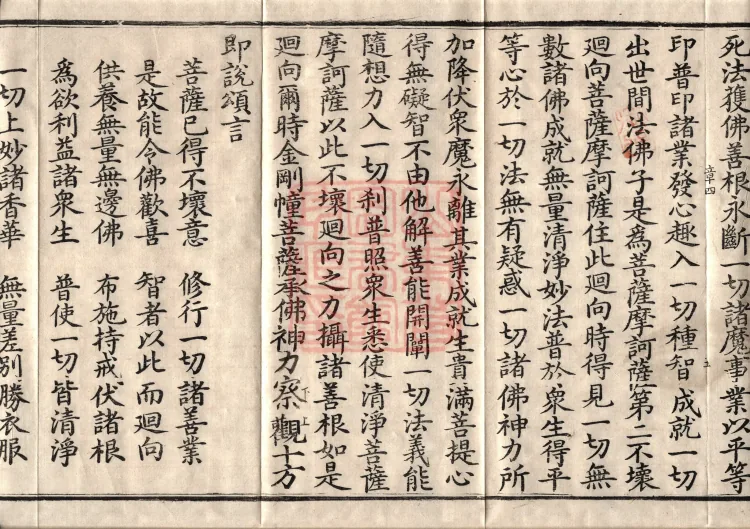 死法獲佛善根永斷一切諸魔事業以平等
印普印諸業發心趣入一切種智成就一切
出世間法佛子是為菩薩摩訶薩第二不壞
迴向菩薩摩訶薩住此迴向時得見一切無
數諸佛成就無量清淨妙法普於衆生得平
等心於一切法無有疑惑一切諸佛神力所
加降伏衆魔永離其業成就生貴滿菩提心
得無礙智不由他解善能開闡一切法義能
隨想力入一切刹普照衆生悉使清淨菩薩
摩訶薩以此不壞迴向之力攝諸善根如是
迴向爾時金剛幢菩薩承佛神力察觀十方
即說頌言
菩薩已得不壞意 修行一切諸善業
是故能令佛歡喜 智者以此而迴向
供養無量無邊佛 布施持戒伏諸根
為欲利益諸衆生 普使一切皆清淨
一切上妙諸香華 無量差别勝衣服
章四
五